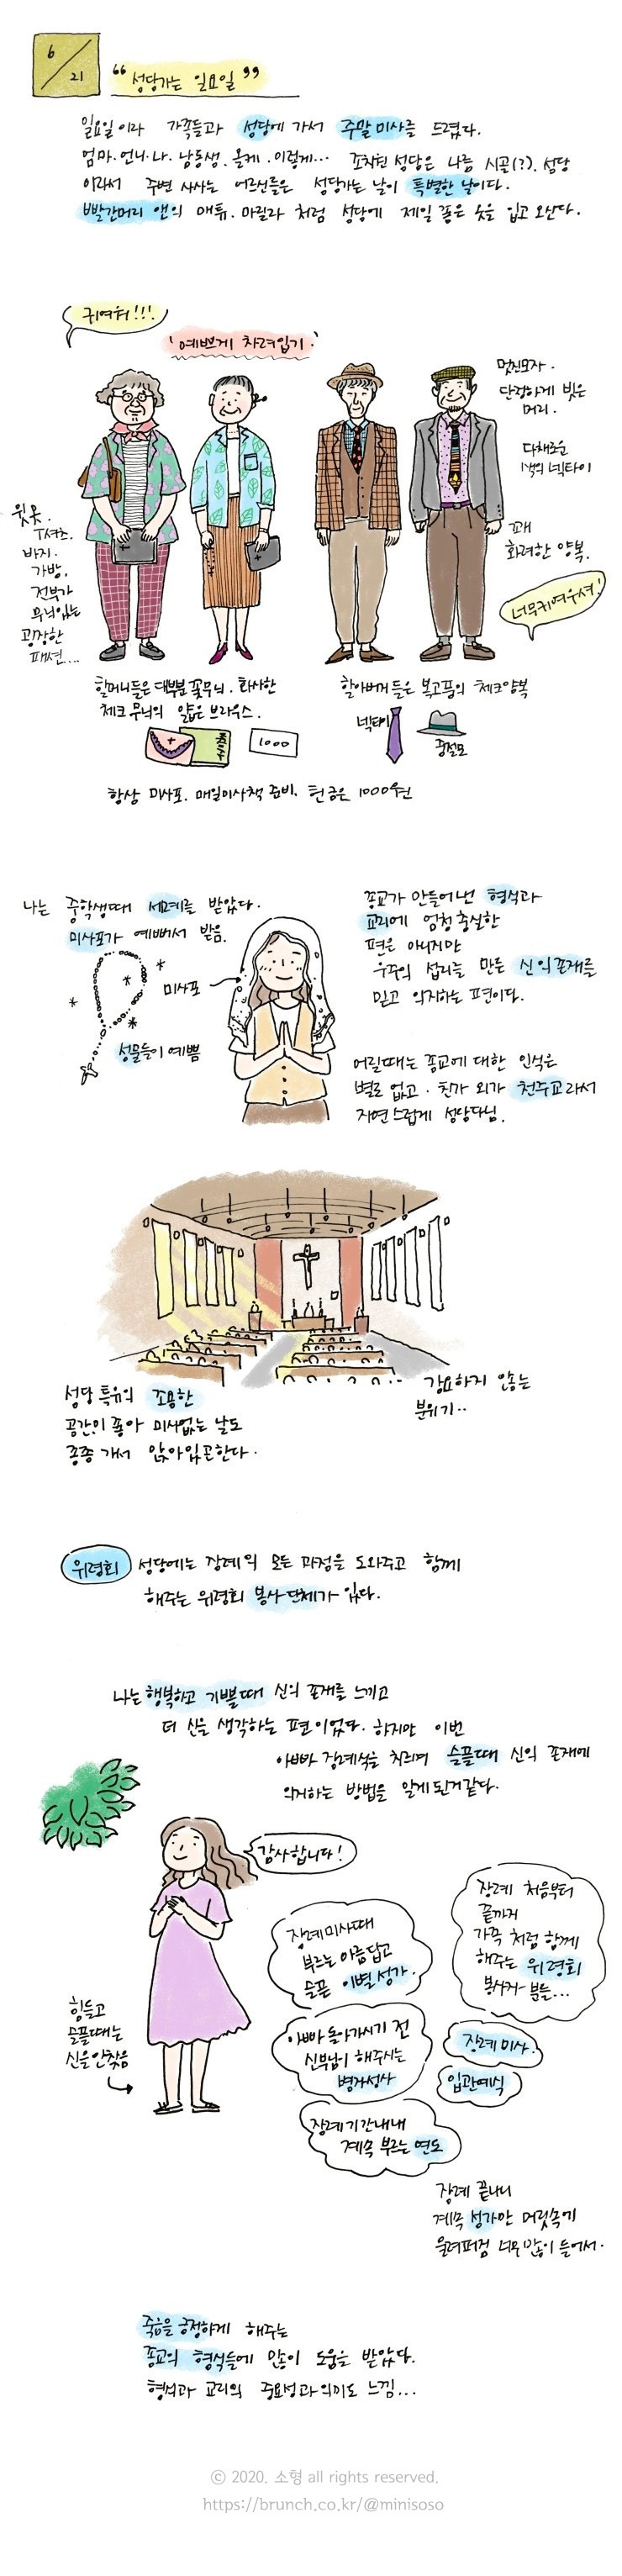 6/21
"성당가는 일요일"
일요일이라 가족들과 성당에 가서 주말미사를 드렸다.
엄마.언니.나.남동생.올케.이렇게... 조치원 성당은 나름 시골(?).성당
이라서 주변 사시는 어르신들은 성당가는 날이 특별한 날이다.
빨간머리 앤의 매튜.마릴라 처럼 성당에 제일 좋은 옷을 입고 오신다.
귀여워!!!
'예쁘게 차려입기'
멋진모자.
단정하게 빗은
머리.
다채로운
넥타이
윗옷.
T셔츠.
바지.
가방.
전부가
무늬있는
굉장한
패션...
꽤
화려한 양복.
너무귀여우셔!
할머니들은 대부분 꽃무늬. 화사한
체크무늬의 얇은 브라우스.
할아버지들은 복고풍의 체크양복
넥타이
중절모
1000
항상 미사포. 매일미사책 준비. 헌금은 1000원
나는 중학생때 세례를 받았다.
미사포가 예뻐서 받음.
미사포
성물들이 예쁨
종교가 만들어낸 형식과
교리에 엄청 충실한
편은 아니지만
우주의 섭리를 만든 신의존재를
믿고 의지하는 편이다.
어릴때는 종교에 대한 인식은
별로 없고. 친가 외가 천주교라서
자연스럽게 성당다님.
성당 특유의 조용한
공간이 좋아 미사없는 날도
종종 가서 앉아있곤한다.
강요하지 않는
분위기..
위령회
성당에는 장례의 모든 과정을 도와주고 함께
해주는 위령회 봉사단체가 있다.
나는 행복하고 기쁠때 신의 존재를 느끼고
더 신을 생각하는 편이었다. 하지만 이번
아빠 장례식을 치르며 슬플때 신의 존재에
의지하는 방법을 알게된거같다.
감사합니다!
힘들고
슬플때는
신을안찾음
장례미사때
부르는 아름답고
슬픈 이별성가.
장례 처음부터
끝까지
가족 처럼 함께
해주는 위령회
봉사자 분들...
아빠 돌아가시기 전
신부님이 해주시는
병자성사
장례미사.
입관예식
장례기간내내
계속 부르는 연도
장례 끝나니
계속 성가만 머릿속에
울려퍼짐 너무많이 들어서.
죽음을 긍정하게 해주는
종교의 형식들에 많이 도움을 받았다.
형식과 교리의 중요성과의미도 느낌...
ⓒ 2020. 소형 all rights reserved.
https://brunch.co.kr/@minisoso